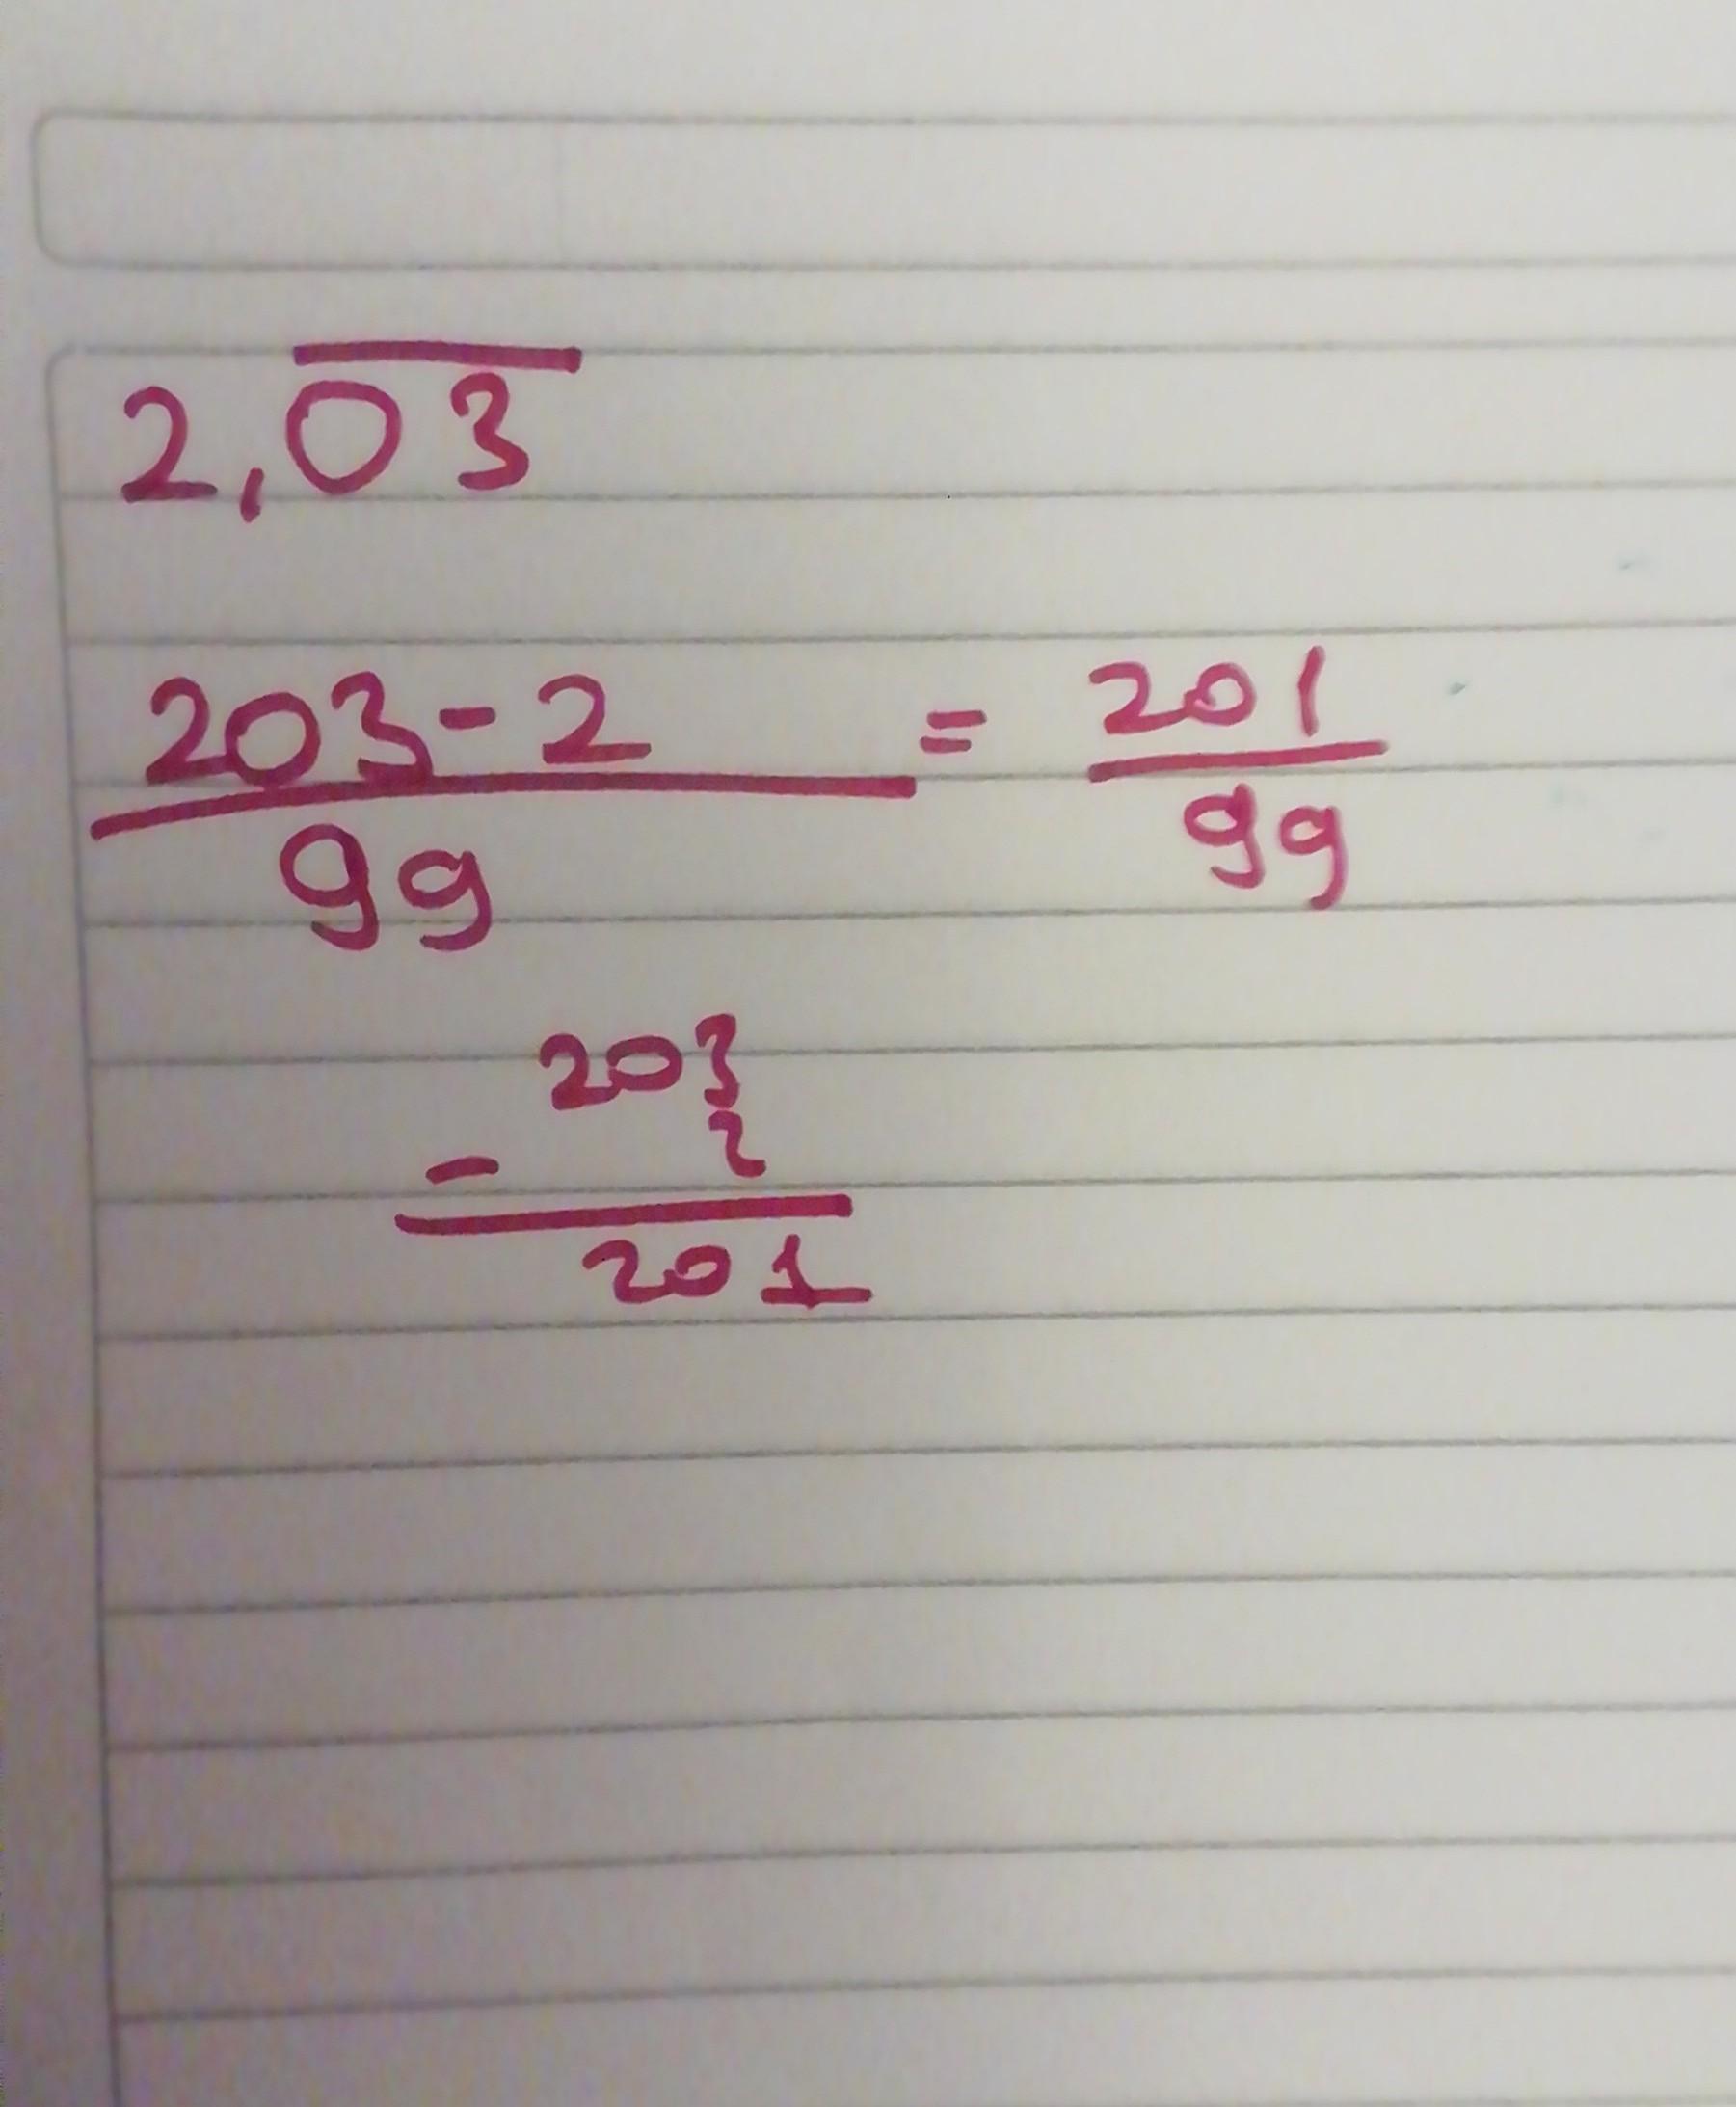 2,0̅3̅
203-2 = 201
99 99
203
2
-
201